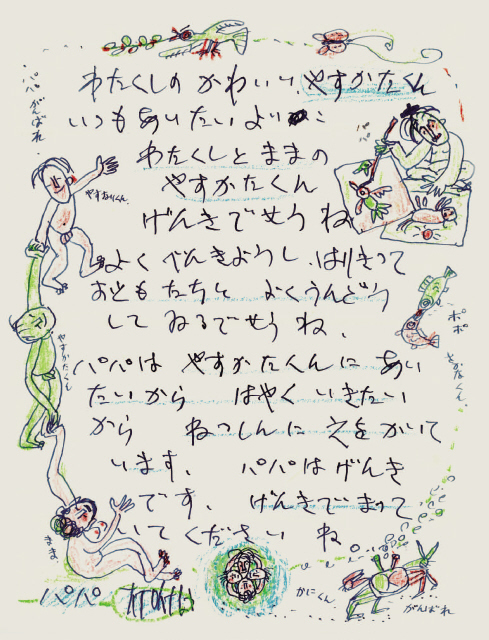 わたくしの かわいい やすかたくん
いつも あいたいよ
わたくしと ままの
やすかたくん
げんきでせう ね、
よく べんきようし、はりきって
おともたちと よくうんどう
して ゐるでせう ね、
パパは やすかたくんに あい
たいから はやく いきたい
から ねっしんに えをかいて
います、 パパは げんき
です、 げんきで まって
いてください ね
パパ
パパ
がんばれ
やすかたくん
まま
パパ
ポポ
さかなくん
かにくん
がんばれ